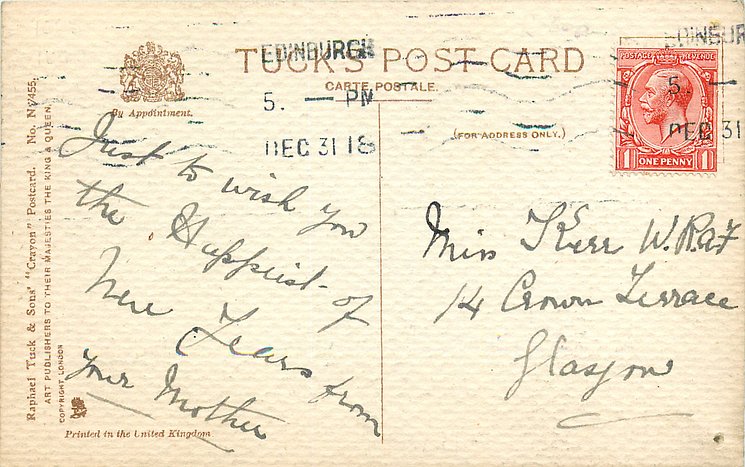 TUCK'S POST CARD
CARTE POSTALE.
By Appointment.
(FOR ADDRESS ONLY.)
EDINBURGH
5. — PM
DEC 31 18
EDINBUR
5.
DEC 31
POSTAGE REVENUE
1 ONE PENNY 1
Just to wish you
the Happiest of
New Years from
your Mother
Miss Kerr W.R.A.F
14 Crown Terrace
Glasgow
Raphael Tuck & Sons' "Crayon" Postcard. No. NY/455.
ART PUBLISHERS TO THEIR MAJESTIES THE KING & QUEEN.
COPYRIGHT LONDON
Printed in the United Kingdom